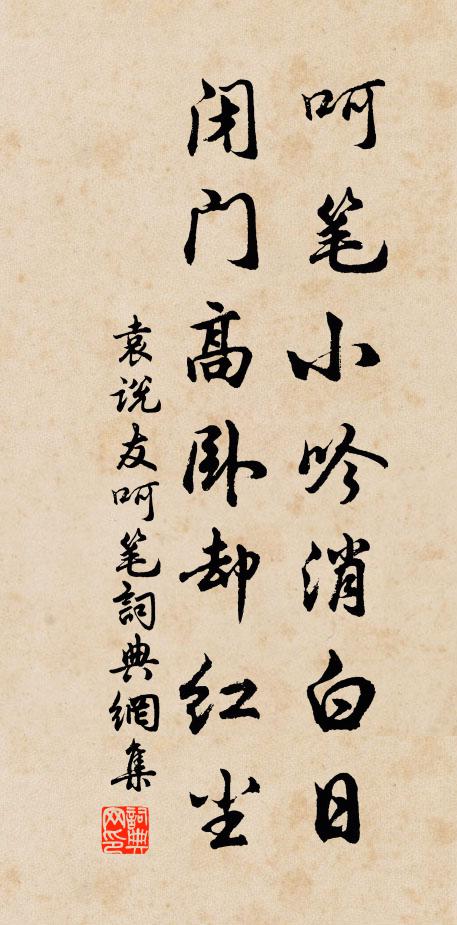 呵笔小吟消白日
闭门高卧却红尘
袁说友呵笔詞典網集
詞典网印